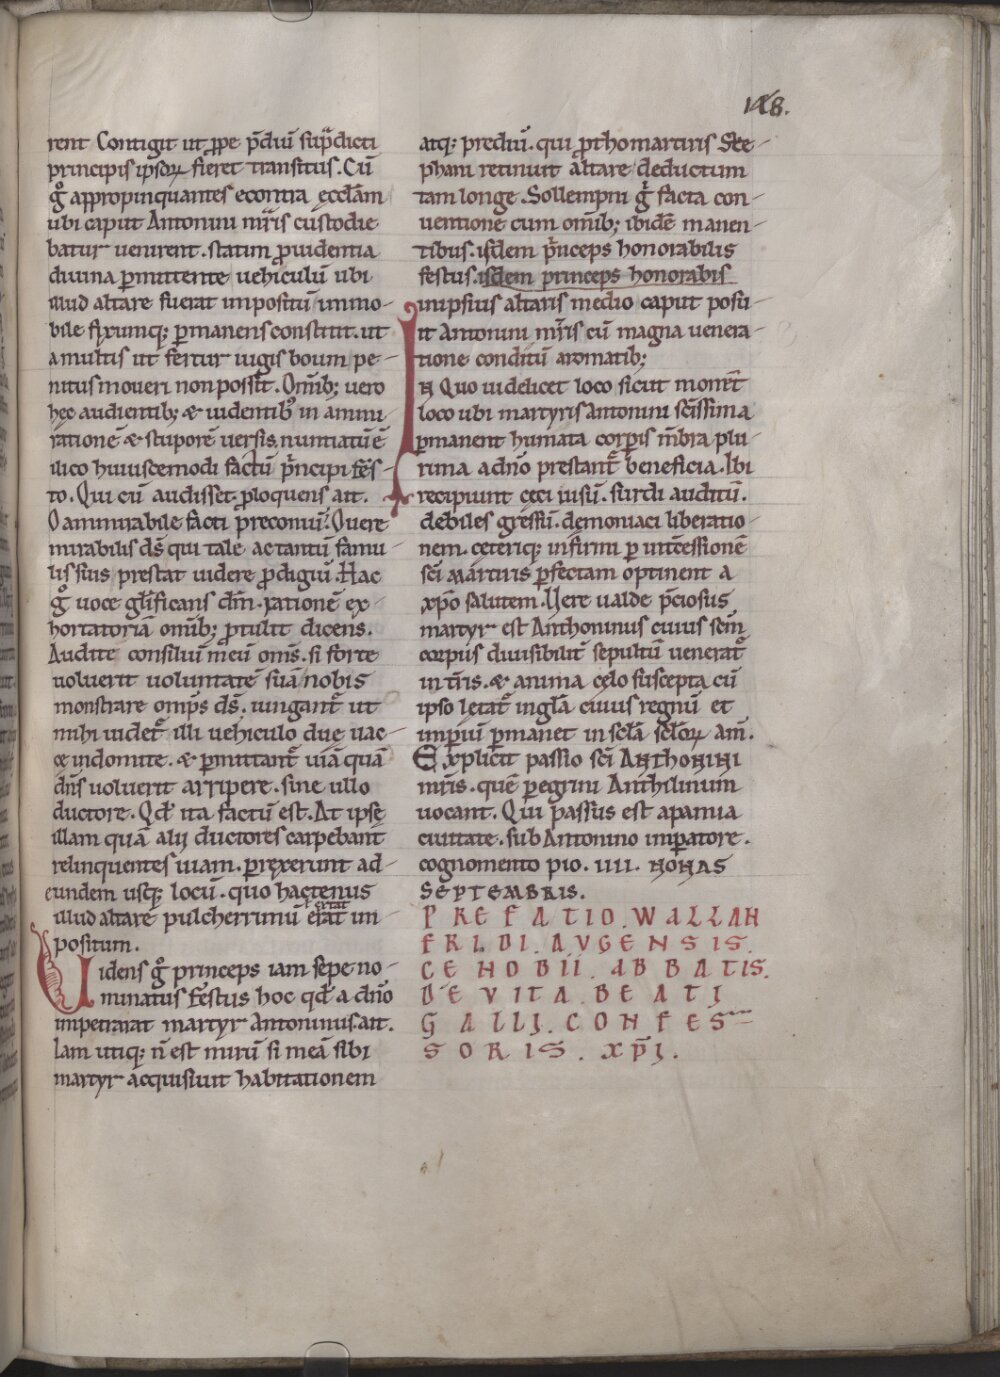 148.
rent Contigit ut ꝓpe p̄diũ sup̃dicti
principis ipsoꝝ fieret transitus. Cũ
g̊ appropinquantes econtra eccłam
ubi caput Antonini mr̃is custodie
batur uenirent. statim ꝓuidentia
diuina ꝑmittente uehiculũ ubi
illud altare fuerat impositũ immo-
bile fixumq; ꝑmanens constitit. ut
a multis ut fertur iugis boum pe-
nitus moueri non possit. Omĩb; uero
hęc audientib; & uidentib; in ammi
rationẽ & stuporẽ uersis, nuntiatũ ẽ
ilico huiuscemodi factũ p̃ncipi fes-
to. Qui cũ audisset. ꝓloquens ait.
O ammirabile facti p̃coniũ. O uere
mirabilis ds̄ qui tale ac tantũ famu-
lis suis prestat uidere ꝓdigiũ. Hac
g̊ uoce gl̃ificans dm̄. rationẽ ex-
hortatoriã omĩb; ꝓtulit dicens.
Audite consilium meũ oms̄. si forte
uoluerit uoluntatẽ suã nobis
monstrare omp̄s ds̄. iungant᷑ ut
mihi uidet᷑ illi uehiculo duę uac-
cę indomite. & ꝑmittant᷑ uiã quã
dn̄s uoluerit arripere. sine ullo
ductore. Qđ ita factũ est. At ipsę
illam quã alij ductores carpebant
relinquentes uiam. ꝑrexerunt ad-
eundem usq; locũ. quo hactenus
illud altare pulcherrimũ erat im-
positum.
Uidens g̊ princeps iam sępe no-
minatus festus hoc qđ a dn̄o
impetrarat martyr Antoninus. ait.
Iam utiq; n̄ est mirũ si meã sibi
martyr acquisiuit habitationem
atq; prediũ. qui ꝓthomartiris Ste-
phani retinuit altare deductum
tam longe. Sollempni g̊ facta con-
uentione cum omĩb; ibidẽ manen-
tibus. isdem p̃nceps honorabilis
festus. isdem princeps honorabis
in ipsius altaris medio caput posu-
it Antonini mr̃is cũ magna uenera-
tione conditũ aromatib;
IN Quo uidelicet loco sicut monet᷑
loco ubi martyris Antonini sc̃issima
ꝑmanent humata corꝑis mẽbra plu-
rima a dn̄o prestant᷑ beneficia. Ibi
recipiunt cęci uisũ. surdi auditũ.
debiles gressũ. demoniaci liberatio-
nem. cęteriq; infirmi ꝑ int̃cessionẽ
sc̃i martiris ꝑfectam optinent a
xp̄o salutem. Uere ualde p̃ciosus
martyr est Anthoninus cuius sc̃m
corpus diuisibilit̃ sepultũ uenerat᷑
in tr̃is. & anima celo suscepta cũ
ipso lętat᷑ in gl̃a cuius regnũ et
imꝑiũ ꝑmanet in sc̃la sc̃loꝝ am̃.
Explicit passio sc̃i ANTHONINI
mr̃is. quẽ peregrini Anthilinum
uocant. Qui passus est apamia
ciuitate. sub Antonino imꝑatore.
cognomento pio. IIII. NONAS
SEPTEMBRIS.
PREFATIO. WALLAH
FRIDI. AVGENSIS.
CENOBII. ABBATIS.
DE VITA. BEATI
GALLI. CONFES-
SORIS. XP̄I.